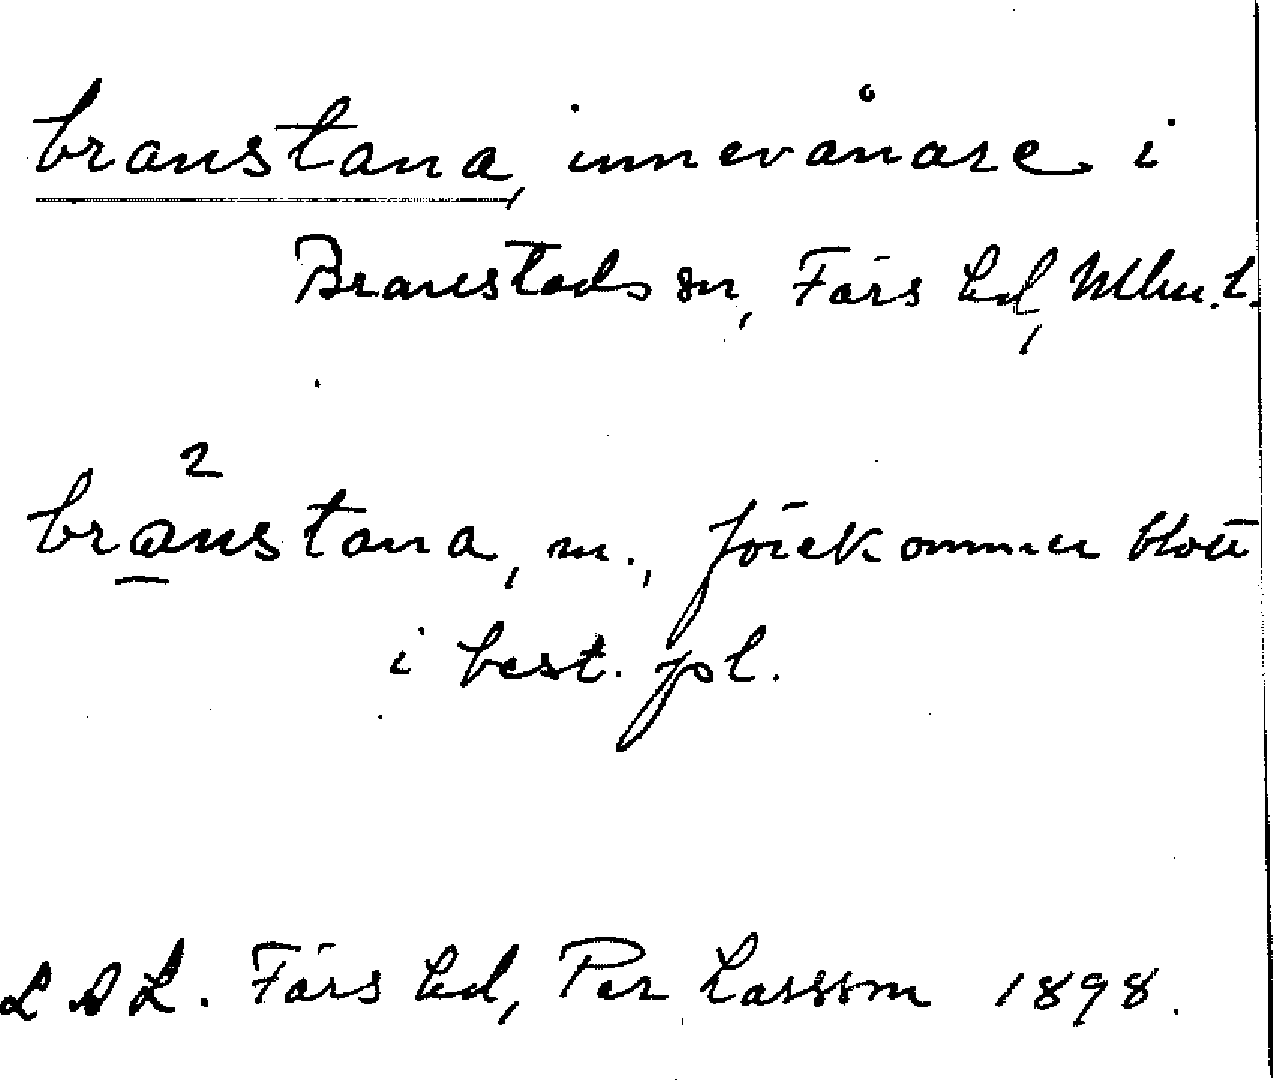 branstana, innevånare i
Branstads sn, Färs hd, Mlm. l.
branstana, m., förekommer blott
i best. pl.
L D L. Färs hd, Per Larsson 1898.